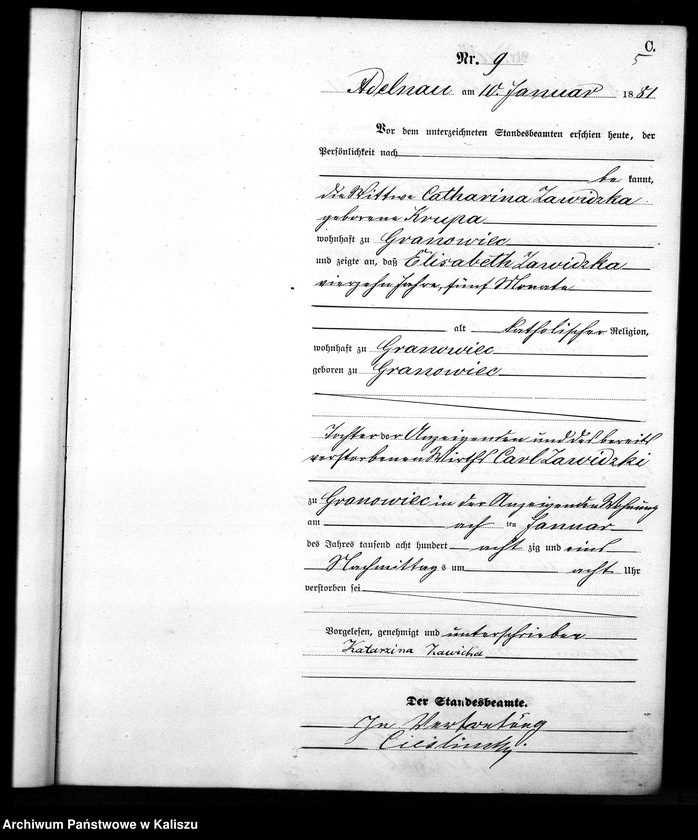 C.
5
Nr. 9
Adelnau am 10. Januar 1881
Vor dem unterzeichneten Standesbeamten erschien heute, der
Persönlichkeit nach
be kannt,
die Wittwe Catharina Zawidzka
geborene Krupa
wohnhaft zu Granowiec
und zeigte an, daß Elisabeth Zawidzka
vierzehn Jahre, fünf Monate
alt katholischer Religion,
wohnhaft zu Granowiec
geboren zu Granowiec
Tochter der Anzeigenden und des bereits
verstorbenen Wirths Carl Zawidzki
zu Granowiec in der Anzeigenden Wohnung
am ach ten Januar
des Jahres tausend acht hundert acht zig und eins
Nachmittag s um acht Uhr
verstorben sei
Vorgelesen, genehmigt und unterschrieben
Katarzina Zawicka
Der Standesbeamte.
In Vertretung
Archiwum Państwowe w Kaliszu